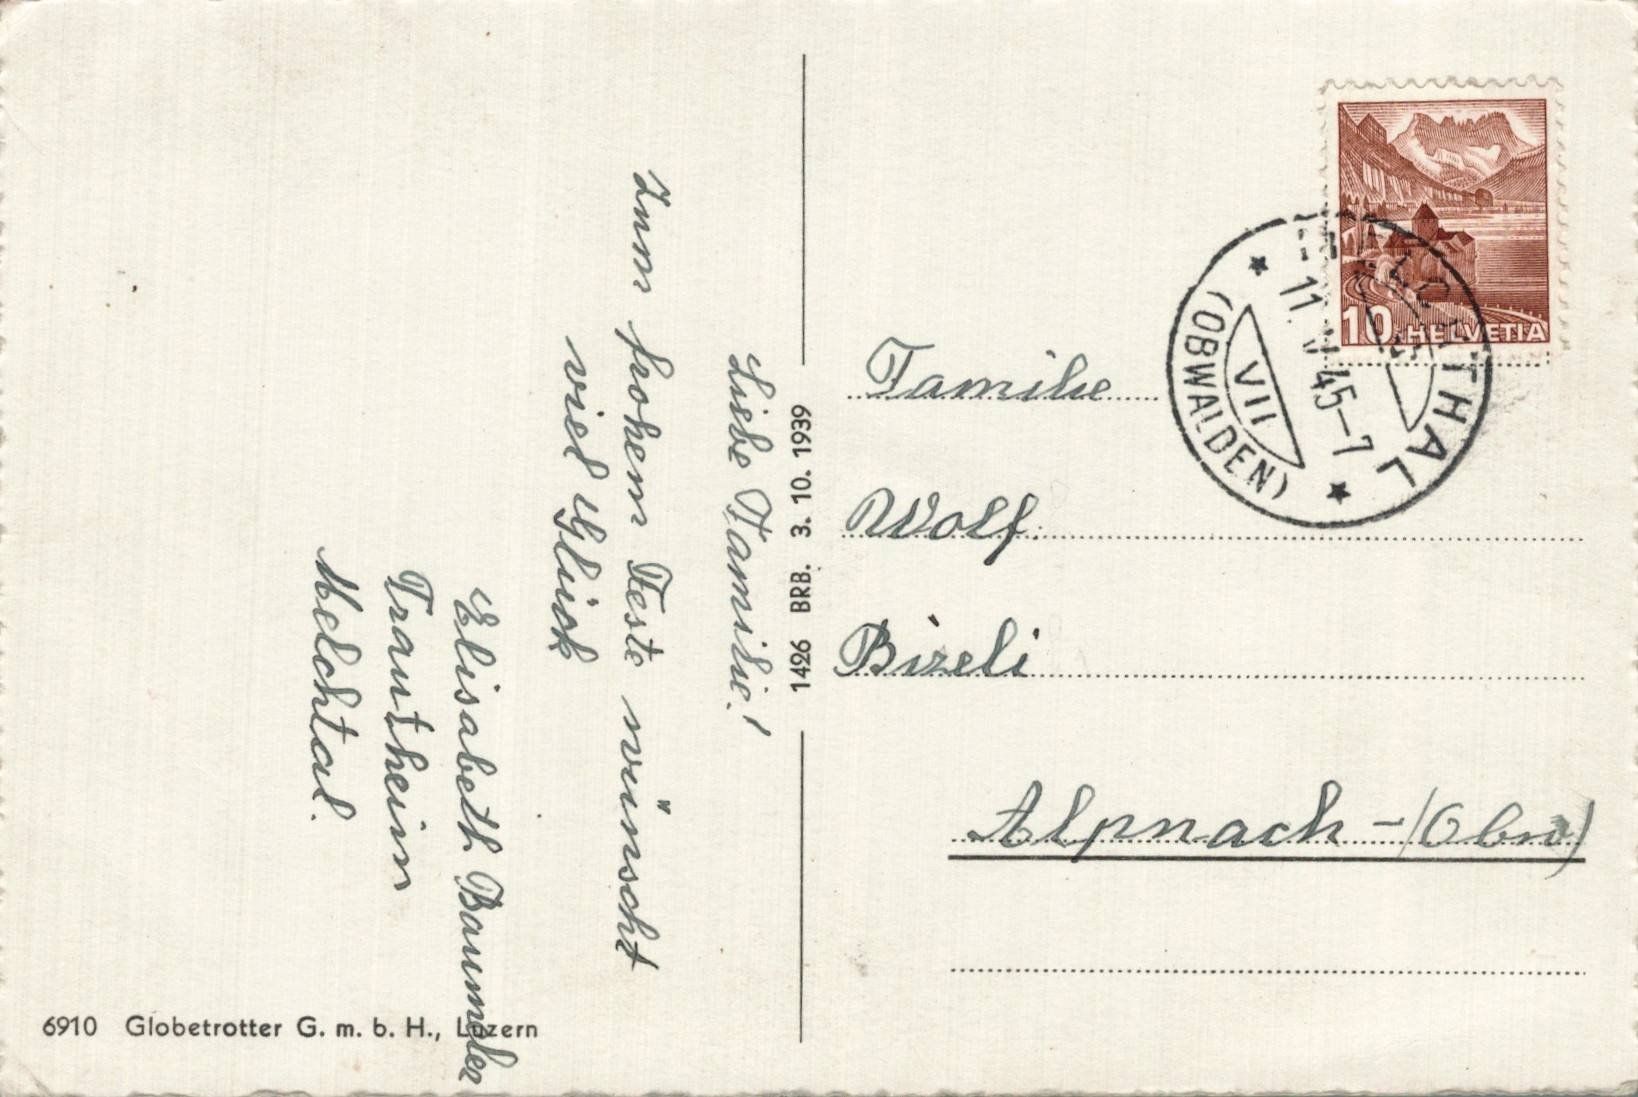 Liebe Familie!
Zum frohem Feste wünscht
viel Glück
Elisabeth Baumeler
Trautheim
Melchtal.
6910 Globetrotter G. m. b. H., Luzern
1426 BRB. 3. 10. 1939
10 HELVETIA
MELCHTHAL
11. V 45-7
VII
(OBWALDEN)
Familie
Wolf
Bizeli
Alpnach-/Obw)